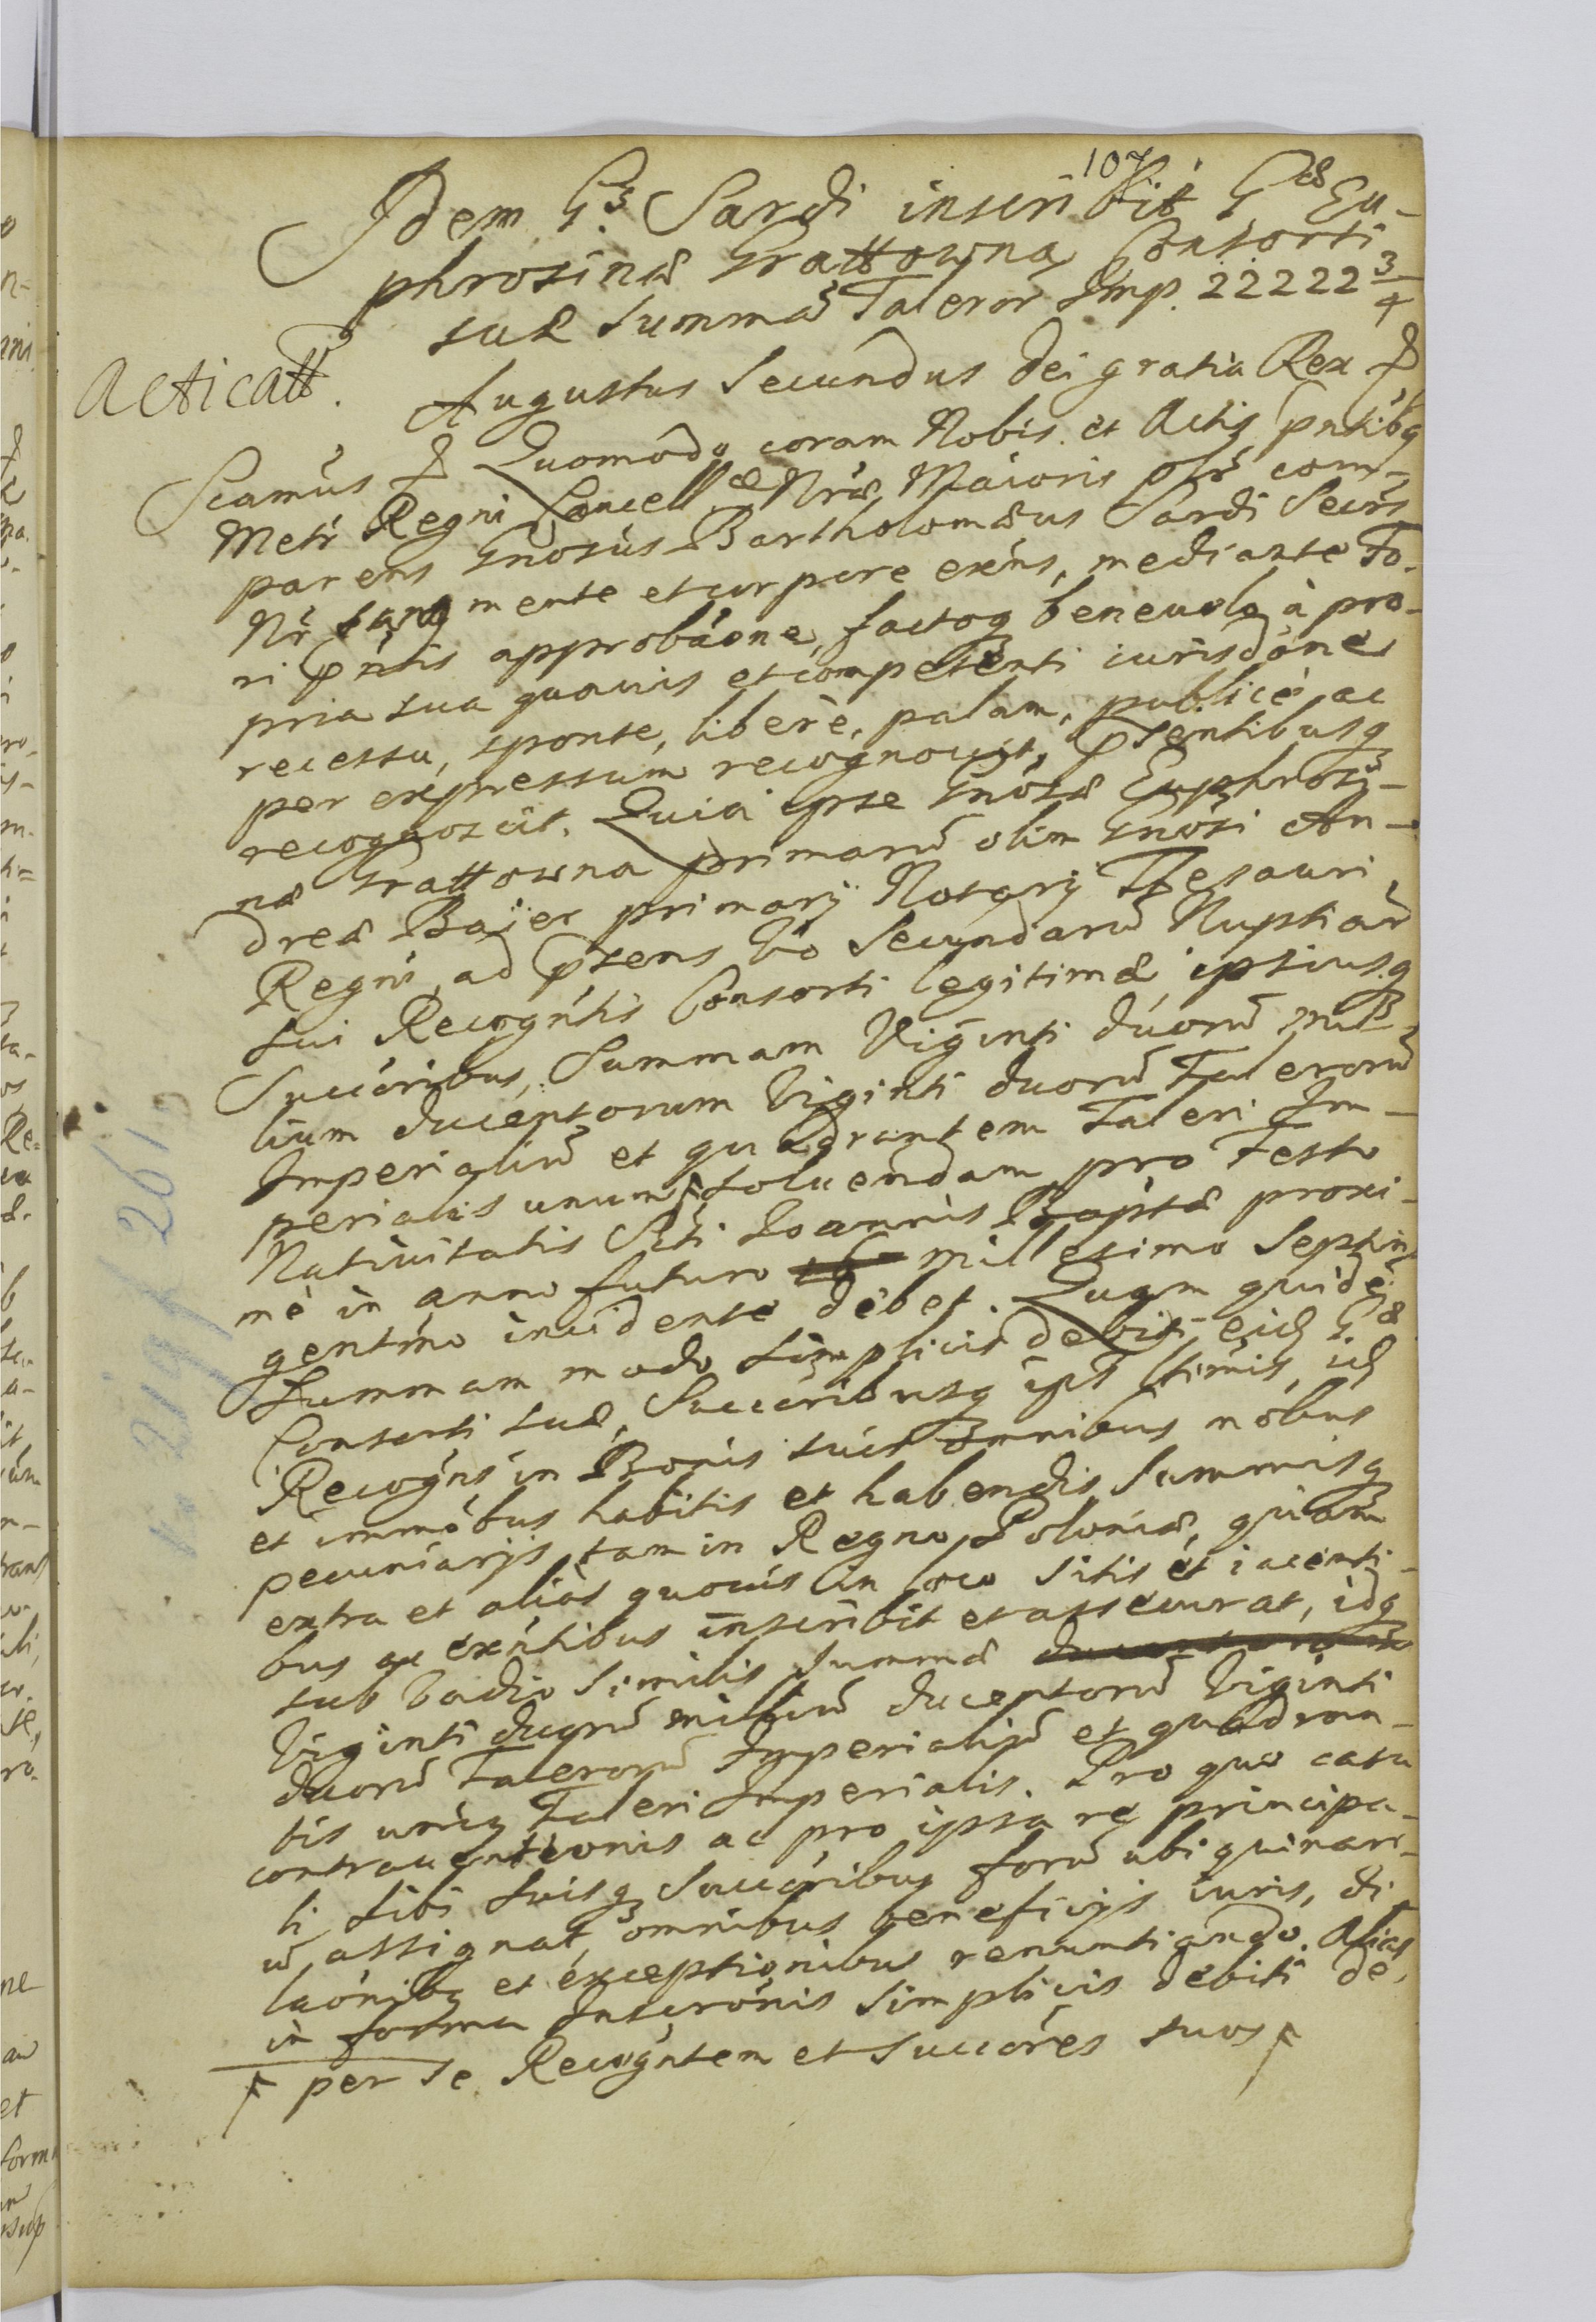 107
Idem G. Sardi inscribit G. Eu-
phrosinæ Grattowna Consorti
suæ summã Taleror Imp. 22222 3/4
Acticatt.
Augustus Secundus Dei gratia Rex P
Quomodo coram Nobis et Actis pntibq
Metr Regni Cancell æ Nræ Maioris plr com-
parens Gnosus Bartholomæus Sardi Secrs
Nr sanq mente et corpore exens, mediante Fo-
ri pntis approbaone, factoq beneuolo à pro-
pria sua quauis et competenti iurisdone
recessu, sponte, liberè, palam, publicè ac
per expressum recognouit, Psentibusq
recognoscit. Quia ipse Gnosæ Euphrosi-
næ Grattowna primarũ olim Gnosi An-
dreæ Baier primarij Notarij Thesauri
Regni, ad psens vo Secundarũ Nuptiarũ
sui Recogntis Consorti legitimæ ipsiusq
Succoribus, Summam Viginti duorũ mil-
lium ducentorum Viginti duorũ Talerorũ
Imperialiũ et quadrantem Taleri Im-
perialis unum, soluendam pro Festo
Natiuitatis Scti Ioannis Baptæ proxi-
mè in anno futuro millesimo Septin
gentmo incidente debet. Quam quidẽ
Summam modo simplicis debiti eid G. æ
Consorti suæ, Succoribusq ips ltimis, id
Recogns in Bonis suis omnibus mobus
et immobus habitis et habendis, Summisq
pecuniarijs, tam in Regno Poloniæ, quam
extra et aliàs quouis in loco sitis et iacenti-
bus ac exntibus inscribit et assecurat, idq
sub Vadio similis summæ
Viginti duorũ milliũ ducentorũ Viginti
duorũ Talerorũ Imperialiũ et quadran-
tis unius Taleri Imperialis. Pro quo casu
contrauentionis ac pro ipsa re principa-
li, sibi suisq Succoribus forũ ubiquinari-
ũ assignat, omnibus beneficijs iuris, di
laonibq et exceptionibus renuntiando. Alias
in forma Inscronis simplicis debiti de
F per se Recogntem et Succores suos F